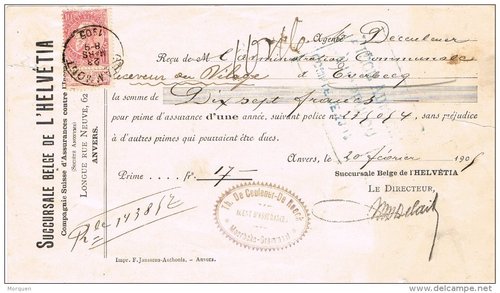 SUCCURSALE BELGE DE L'HELVÉTIA
Compagnie Suisse d'Assurances contre l'Incendie
LONGUE RUE NEUVE, 62
ANVERS.
Agence Deceulener
Reçu de M l'administration Communale
Receveur du Village d' Everbecq
la somme de Dix sept francs
pour prime d'assurance d'une année, suivant police n°, sans préjudice
à d'autres primes qui pourraient être dues.
Anvers, 20 février 190
Prime Fr. 17
Succursale Belge de l'HELVÉTIA
LE DIRECTEUR,
Th. De Ceulener-De
Impr. F. Janssens-Anthonis. - Anvers.
delcampe.net